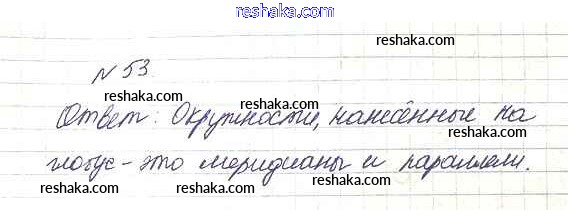 reshaka.com
reshaka.com
N 53.
reshaka.com
reshaka.com
Ответ: Окружности, нанесённые на
reshaka.com
глобус - это меридианы и параллели.
reshaka.com
reshaka.com